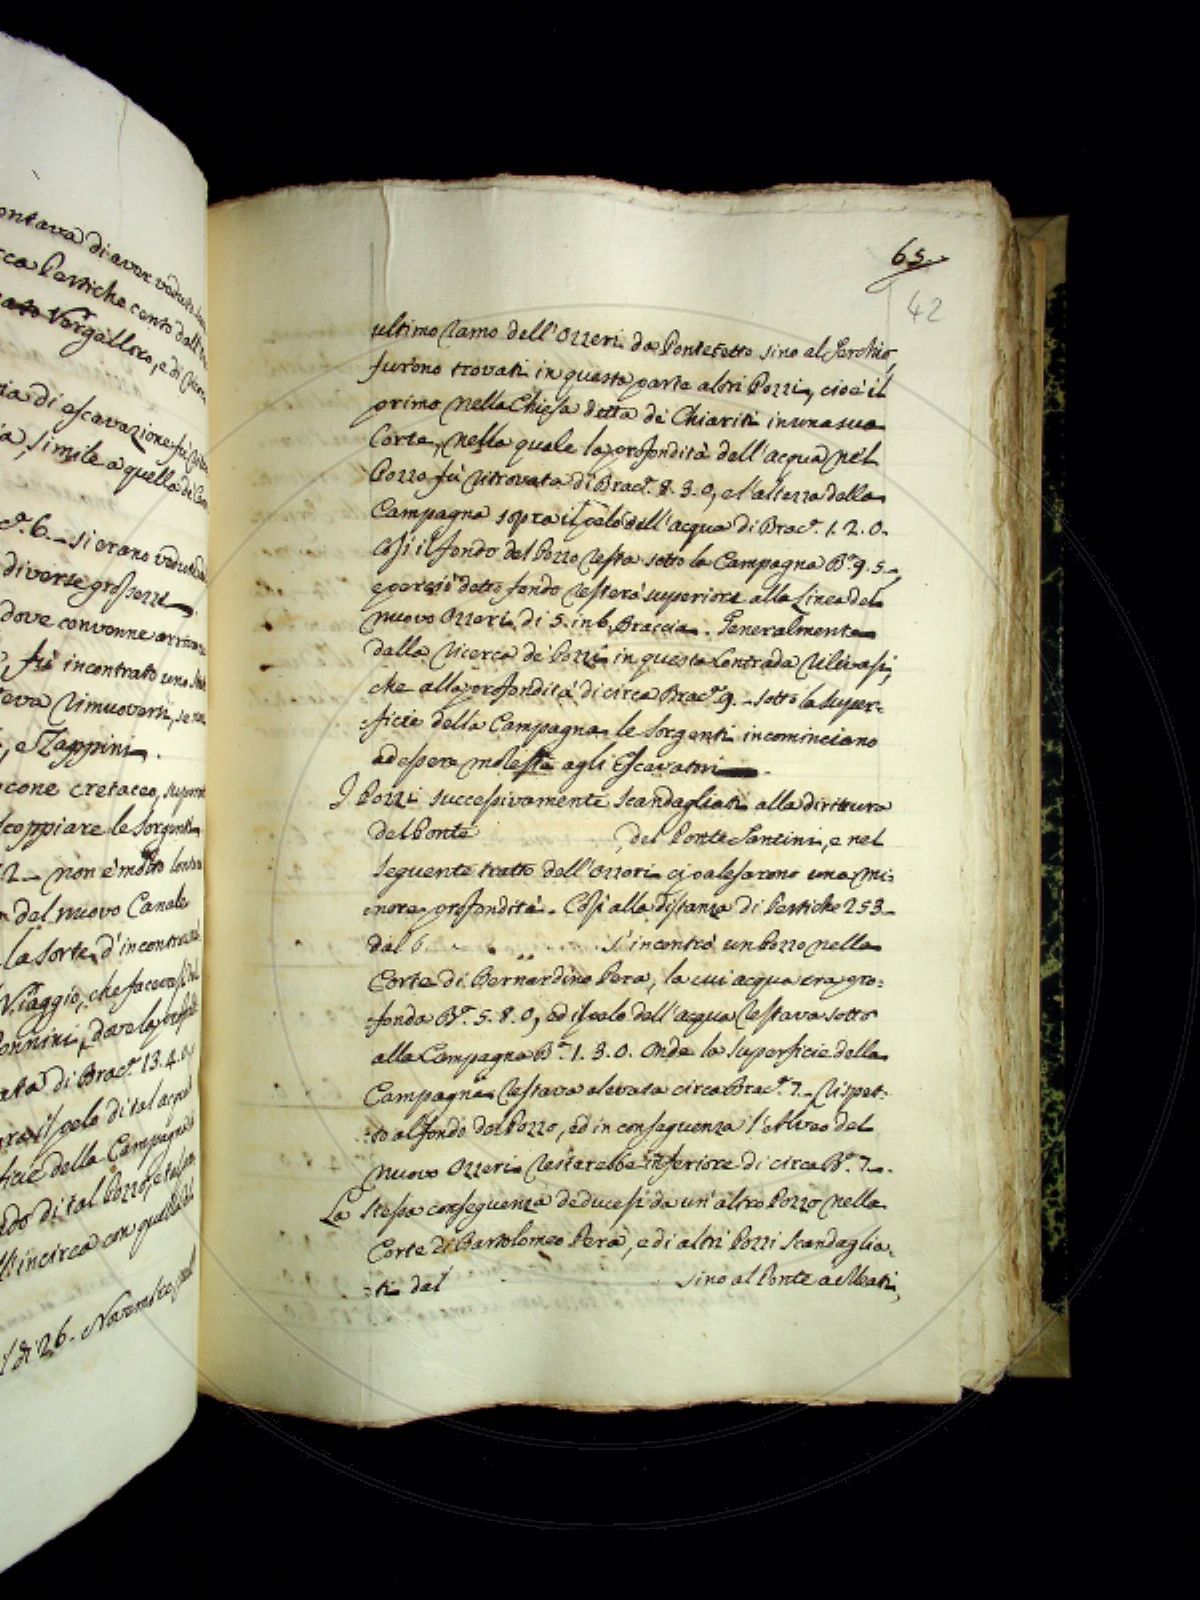 ontava di aver veduto
cca Pertiche cento dall'
Vergilloro, e di
ia di escavazione fù
a, simile a quella di
c.ª 6. – si erano vedute
diverse grossezze
dove convenne
fù incontrato uno
teva rimuoversi, se
, e Zappini.
cone cretaceo,
scoppiare le sorgenti
12 – non è molto
del nuovo Canale
la sorte d'incontrare
Viaggio, che facevasi
onnini, dove la
ata di Brac.ª 13.4.0.
il pelo di tal acqua
ficie della Campagna
ndo di tal Pozzo
ll'incirca con quella
l dì 26. Novembre
65.
42
ultimo ramo dell'Ozzeri da Pontetetto sino al Serchio,
furono trovati in questa parte altri Pozzi, cioè il
primo nella Chiesa detta de' Chiariti in una sua
Corte, nella quale la profondità dell'acqua nel
Pozzo fù ritrovata di Brac.ª 8.3.0, e l'altezza della
Campagna sopra il pelo dell'acqua di Brac.ª 1.2.0.
Così il fondo del Pozzo resta sotto la Campagna B.ª 9.5 –,
e perciò detto fondo resterà superiore alla Linea del
nuovo Ozzeri di 5. in 6. Braccia. Generalmente
dalla ricerca de' Pozzi in questa Contrada rilevasi,
che alla profondità di circa Brac.ª 9. – sotto la super:
:ficie della Campagna le sorgenti incominciano
ad essere moleste agli Escavatori.
I Pozzi successivamente scandagliati alla dirittura
del Ponte , del Ponte Santini, e nel
seguente tratto dell'Ozzori ci palesarono una mi:
:nore profondità. Così alla distanza di Pertiche 253 –
dal P. s'incontrò un Pozzo nella
Corte di Bernardino Pera, la cui acqua era pro:
:fonda B.ª 5.8.0, ed il pelo dell'acqua restava sotto
alla Campagna B.ª 1.3.0. Onde la superficie della
Campagna restava elevata circa Brac.ª 7. – rispet:
:to al fondo del Pozzo, ed in conseguenza l'Alveo del
nuovo Ozzeri resterebbe inferiore di circa B.ª 7 –.
La stessa conseguenza deducesi da un'altro Pozzo nella
Corte di Bartolomeo Pera, e di altri Pozzi scandaglia:
:ti dal sino al Ponte a Moati,